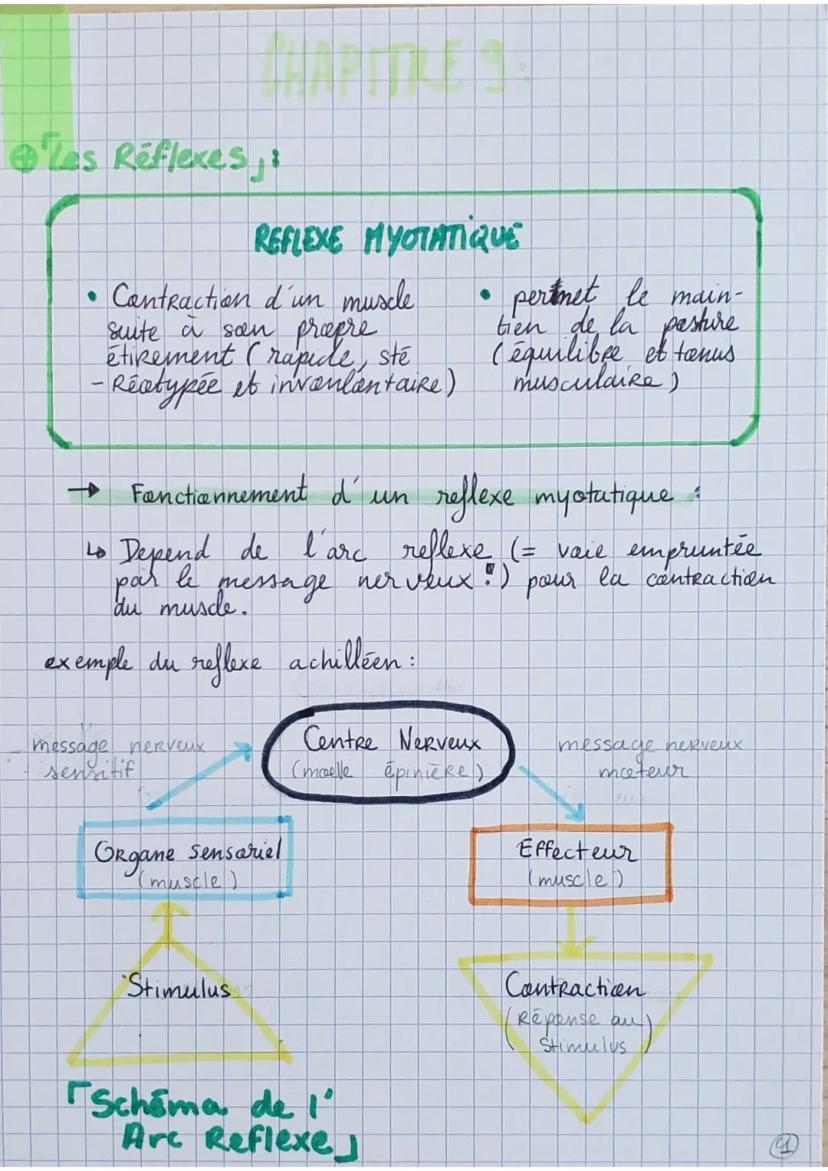 CHAPITRE 9:
⊕「Les Réflexes」:
REFLEXE MYOTATIQUE
• Contraction d'un muscle
suite à son propre
étirement (rapide, sté
-Réotypée et involontaire)
• permet le main-
tien de la posture
(équilibre et tonus
musculaire)
→ Fonctionnement d'un reflexe myotatique :
↳ Depend de l'arc reflexe (= voie empruntée
par le message nerveux !) pour la contraction
du muscle.
exemple du reflexe achilléen :
Centre Nerveux
(moelle épinière)
message nerveux
sensitif
message nerveux
moteur
Organe sensoriel
(muscle)
Effecteur
(muscle)
Stimulus
Contraction
(Réponse au
Stimulus)
「Schéma de l'
Arc Reflexe」